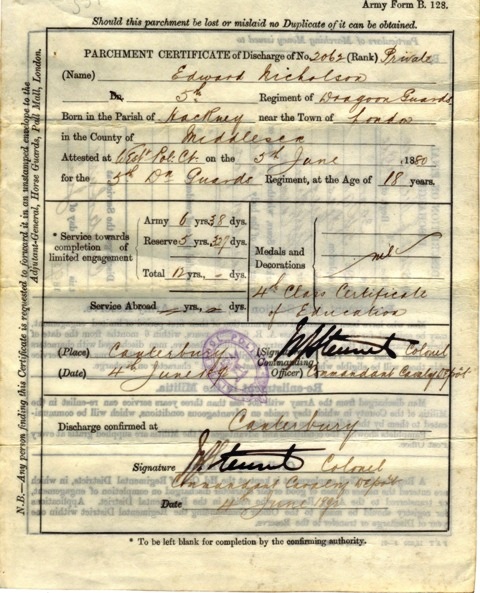 Army Form B. 128.
Should this parchment be lost or mislaid no Duplicate of it can be obtained.
PARCHMENT CERTIFICATE of Discharge of No. 2062 (Rank) Private
(Name) Edward Nicholson
5th Regiment of Dragoon Guards
Born in the Parish of Hackney near the Town of London
in the County of Middlesex
Attested at West. Pol. Ct. on the 3rd June 1880
for the 5th Dn Guards Regiment, at the Age of 18 years.
* Service towards completion of limited engagement
Army 6 yrs. 38 dys.
Reserve 5 yrs. 327 dys.
Total 12 yrs. — dys.
Service Abroad — yrs. — dys.
Medals and Decorations nil
4th Class Certificate
of Education
(Place) Canterbury
(Date) 4th June 189
(Signature Commanding Officer) Colonel
Commandant Cavalry Depôt
Discharge confirmed at Canterbury
Signature Colonel
Commandant Cavalry Depôt
Date 4th June 189
* To be left blank for completion by the confirming authority.
N.B.—Any person finding this Certificate is requested to forward it in an unstamped envelope to the
Adjutant-General, Horse Guards, Pall Mall, London.